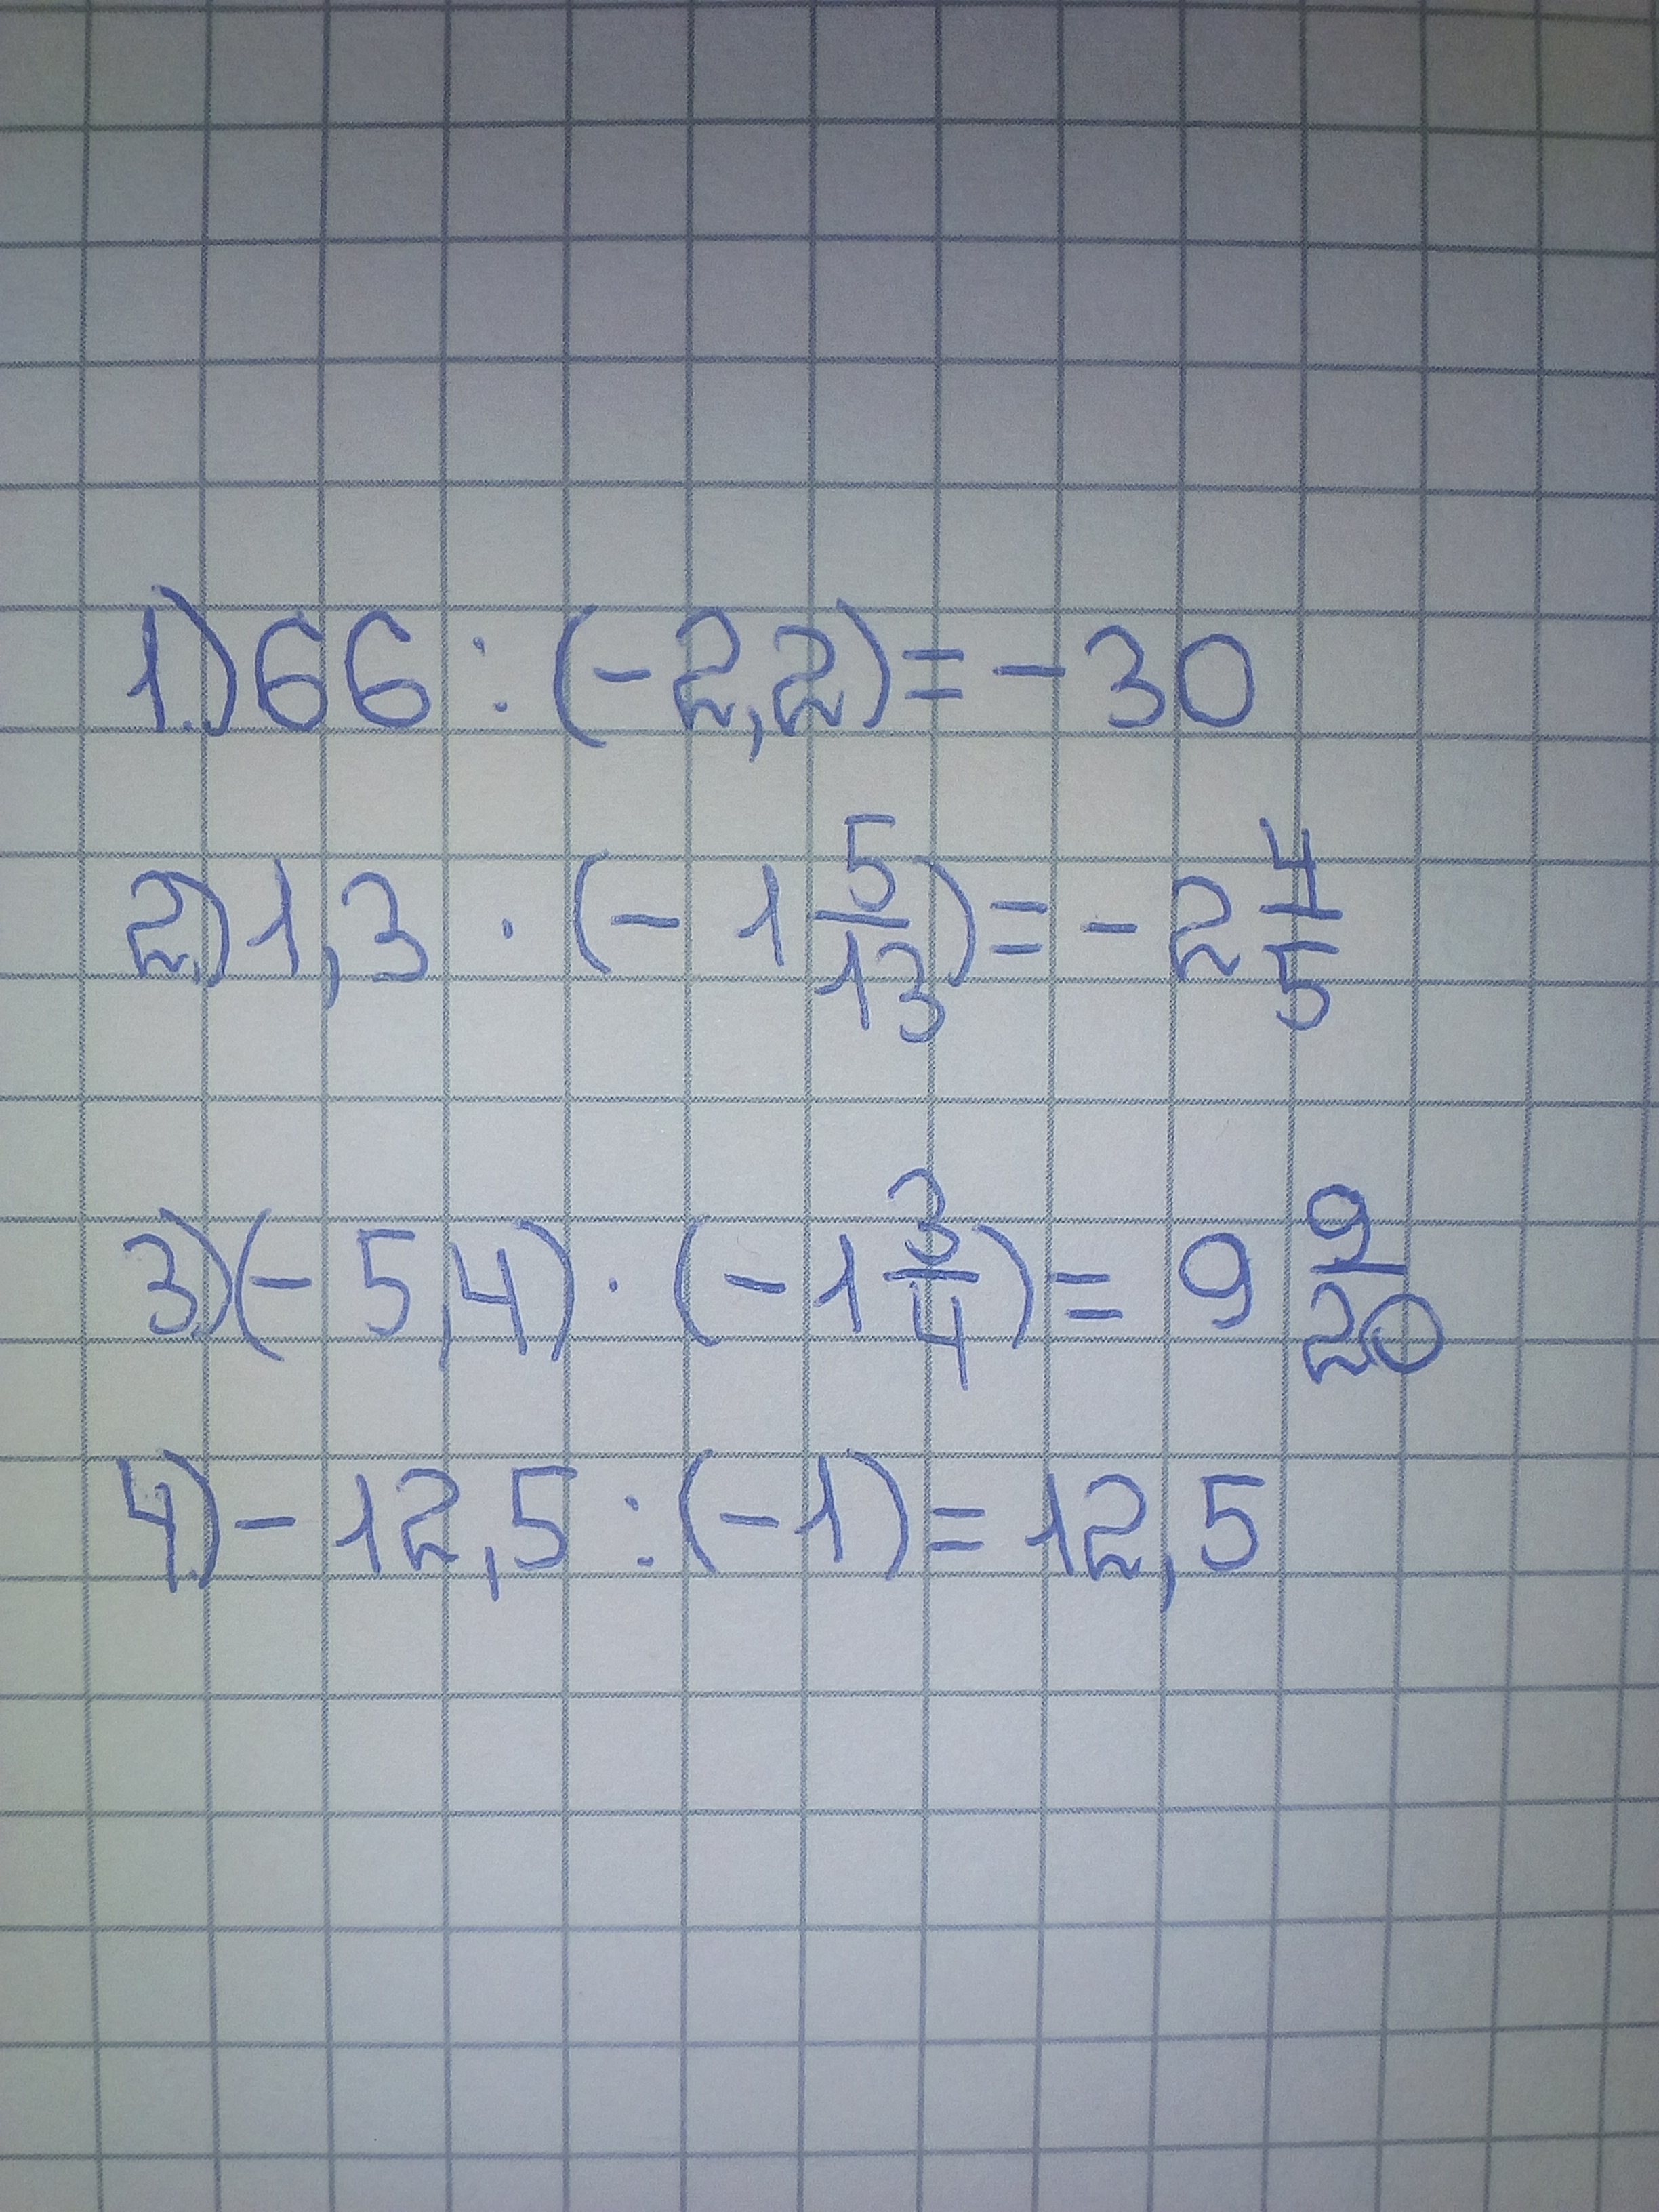 1.) 66 : (-2,2) = -30
2.) 1,3 · (-1 5/13) = -2 4/5
3.) (-5,4) · (-1 3/4) = 9 9/20
4.) -12,5 : (-1) = 12,5